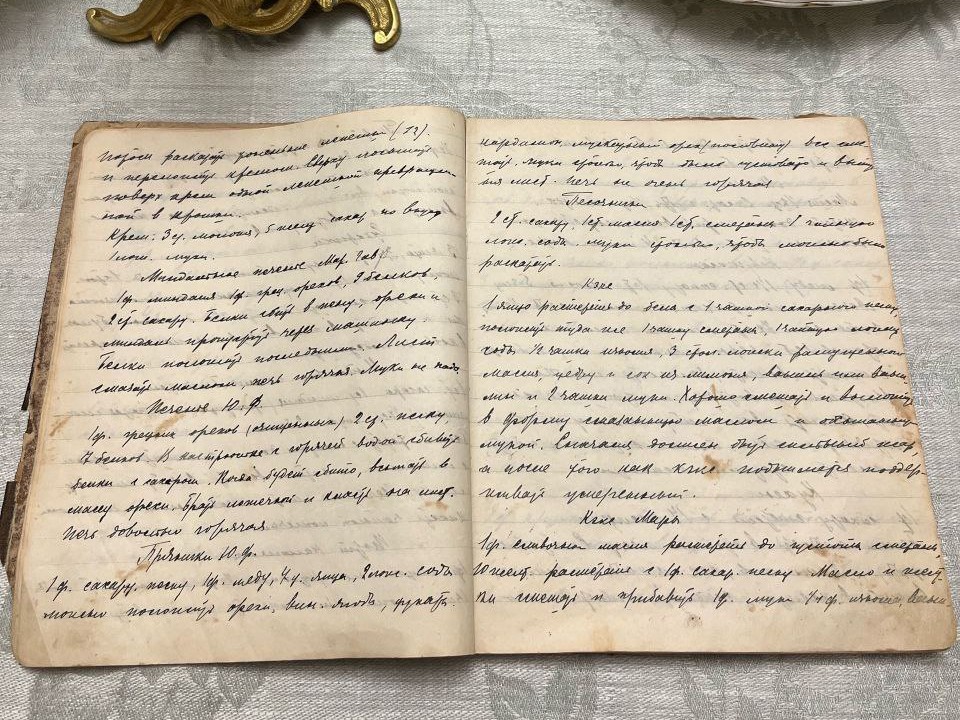 потом раскатать тоненькие лепешки (12).
и переложить кремом. Сверху посыпать
поверх крем одной лепешкой превращен-
ной в крошки.
Крем. 3 ч. молока, 5 песку сахар. по вкусу
1 лож. муки.
Миндальное печенье Мар. Гавр.
1ф. миндаля 1ф. грец. орехов, 9 белков,
2 ст. сахару. Белки сбить в пену, орехи и
миндаль пропустить через машинку.
Белки положить последними. Лист
смазать маслом, печь горячая. Муки не надо.
Печенье Ю. Ф.
1ф. грецких орехов (очищенных) 2 ст. песку,
7 белков. В кастрюльке с горячей водой сбивать
белки с сахаром. Когда будет сбито, всыпать в
массу орехи. Брать ложечкой и класть на лист.
Печь довольно горячая.
Пряники Ю. Ф.
1 ф. сахару, песку, 1ф. меду, 4 шт. яйца, 2 лож. соды
можно положить орехи, вин. ягоды, цукаты.
кардамон, мускатный орех все
муки столько, чтоб было густовато и
на лист. Печь не очень горячая
Песочники
2 ст. сахару, 1 ст. масла 1 ст. сметаны 1 чайную
лож. соды муки столько, чтоб можно было
раскатать.
Кэкс
1 яйцо растереть до бела с 1 чашкой сахарного песку
положить туда же 1 чашку сметаны 1 чайную ложку
соды ½ чашки изюма 3 стол. ложки распущенного
масла, цедру и сок из лимона, ваниль или
и 2 чашки муки. Хорошо смешать и выложить
в форму смазанную маслом и обсыпанную
мукой. Сначала должен быть сильный жар,
а после того как кэкс подымется поддер-
живать умеренный.
Кэкс Мары
1ф. сливочного масла растереть до густоты сметаны
10 желт. растереть с 1ф. сахар. песку. Масло и желт-
ки смешать и прибавить 1ф. муки ¼ ф. изюма,